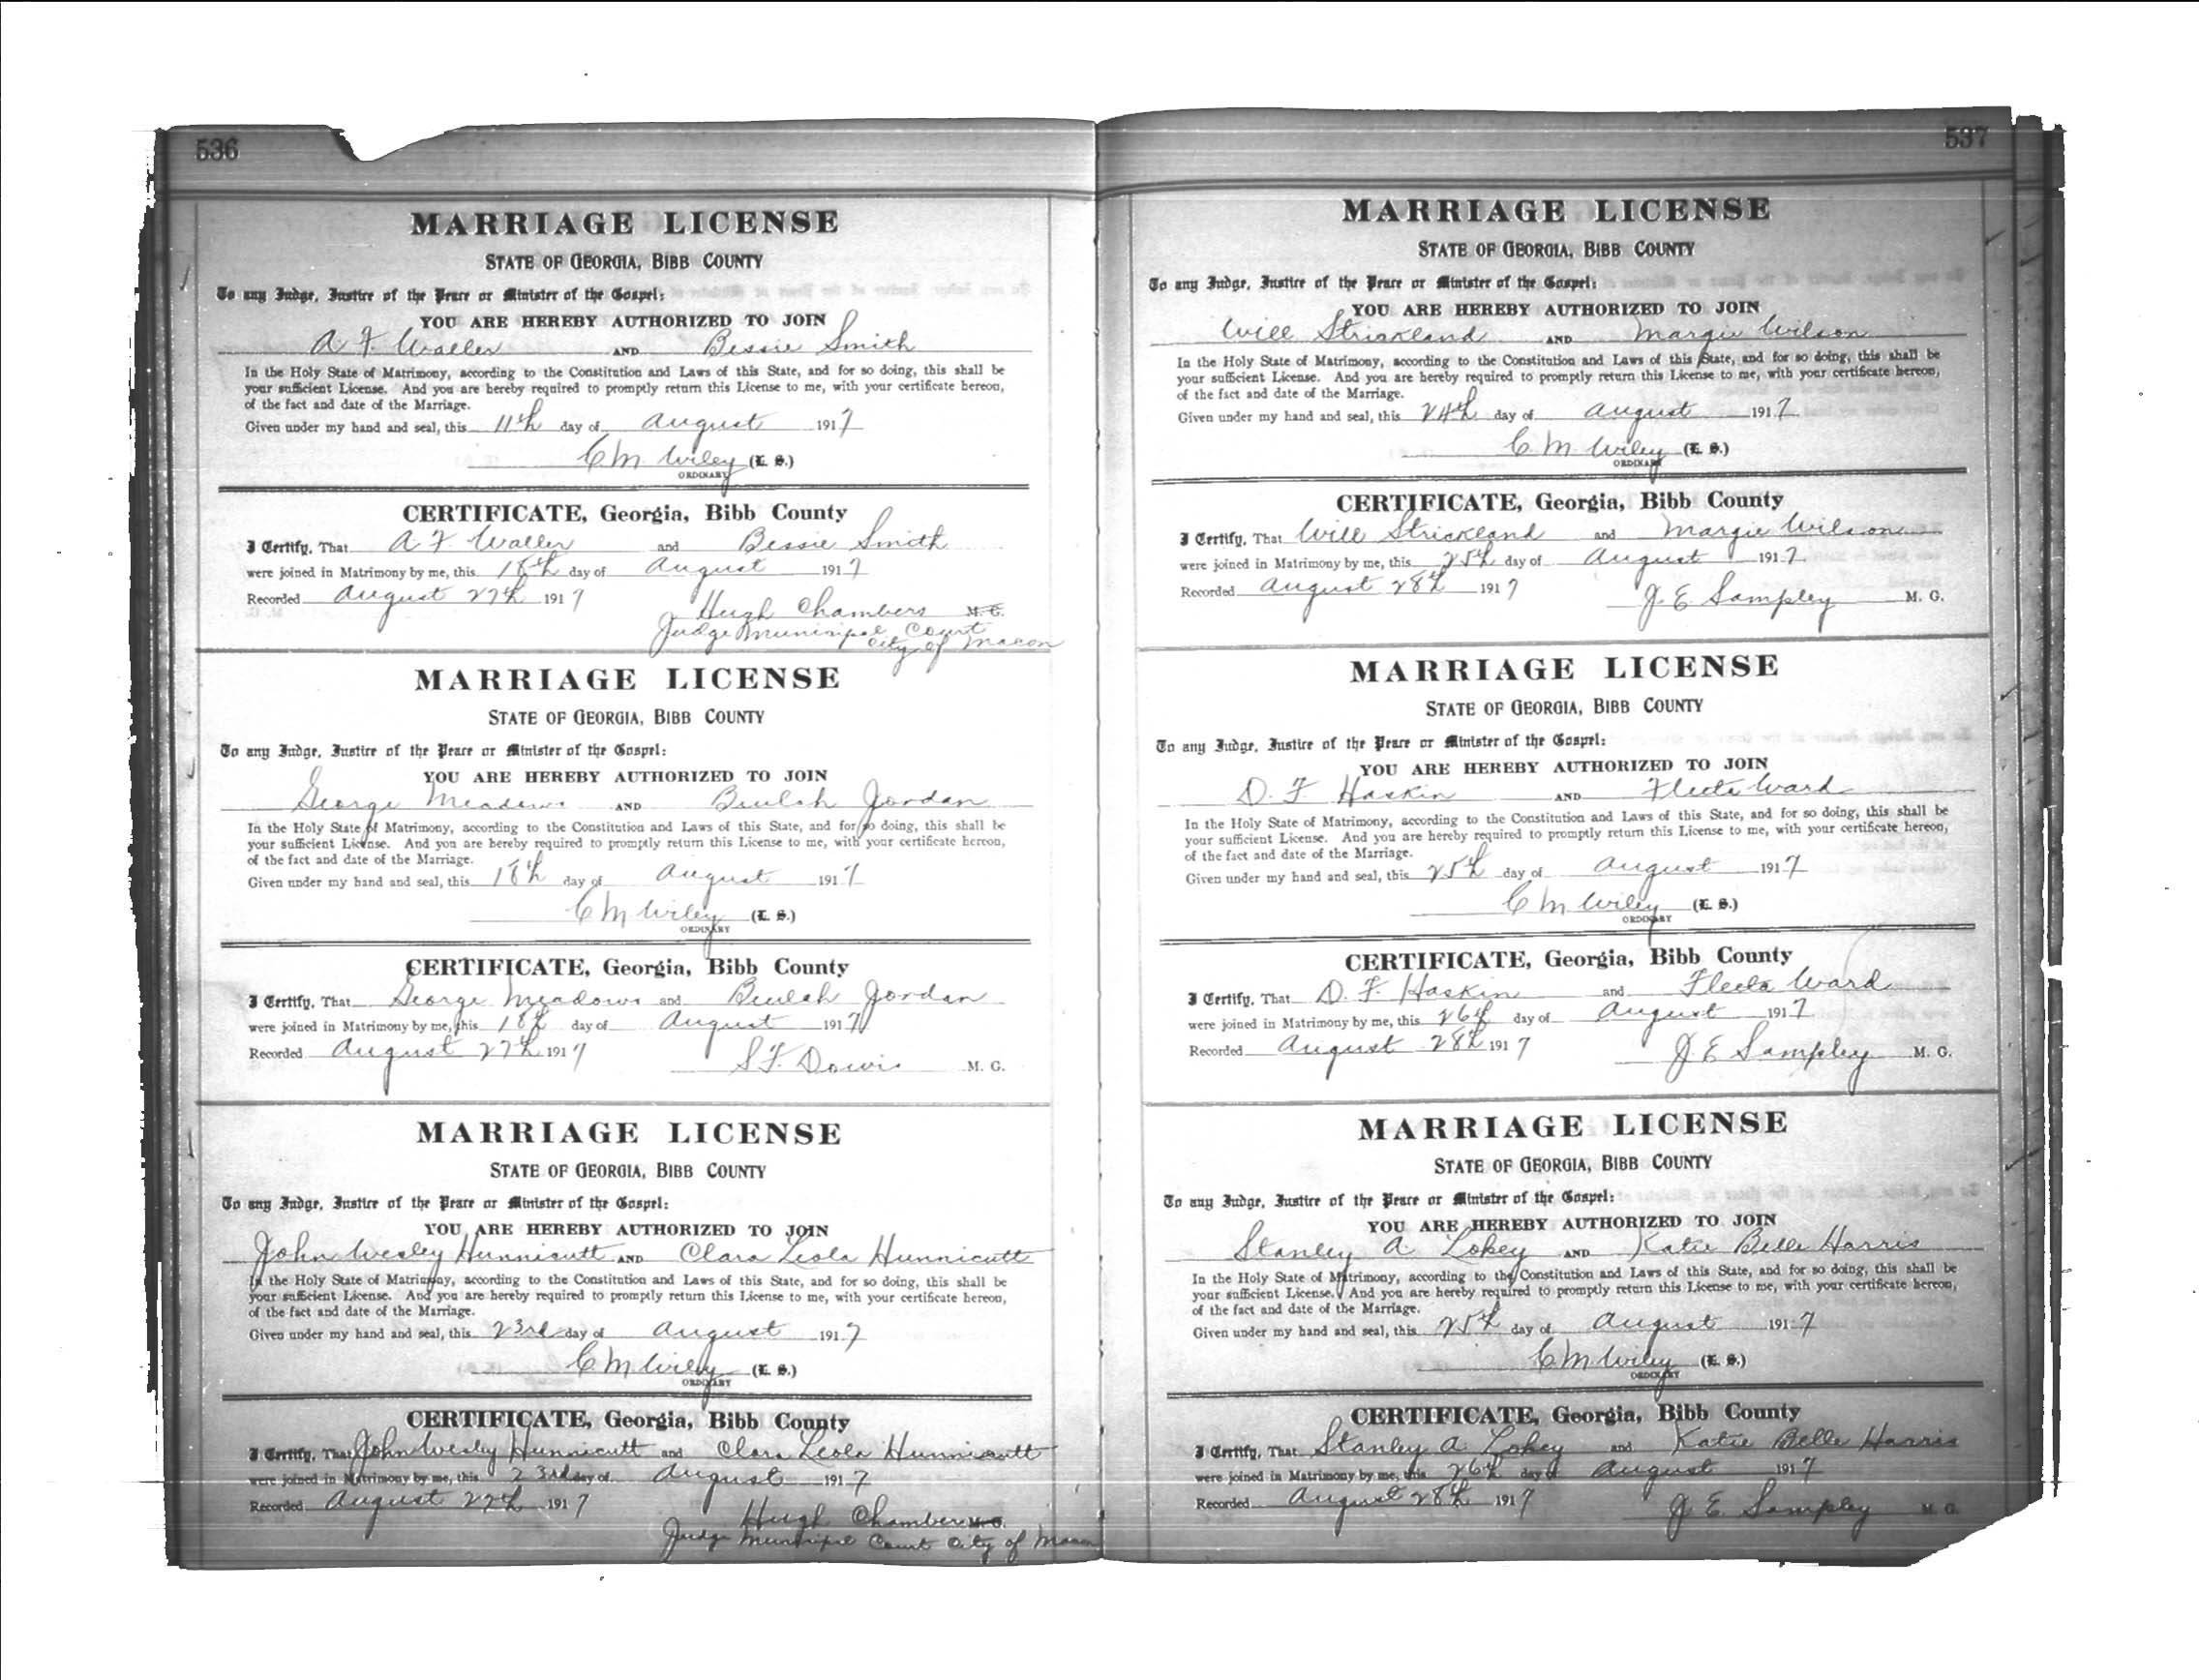 536
MARRIAGE LICENSE
STATE OF GEORGIA, BIBB COUNTY
To any Judge, Justice of the Peace or Minister of the Gospel:
YOU ARE HEREBY AUTHORIZED TO JOIN
A F Waller AND Bessie Smith
In the Holy State of Matrimony, according to the Constitution and Laws of this State, and for so doing, this shall be
your sufficient License. And you are hereby required to promptly return this License to me, with your certificate hereon,
of the fact and date of the Marriage.
Given under my hand and seal, this 11th day of August 1917
C M Wiley (L. S.)
ORDINARY
CERTIFICATE, Georgia, Bibb County
I Certify, That A F Waller and Bessie Smith
were joined in Matrimony by me, this 18th day of August 1917
Recorded August 27th 1917
Hugh Chambers M. G.
Judge Municipal Court
City of Macon
MARRIAGE LICENSE
STATE OF GEORGIA, BIBB COUNTY
To any Judge, Justice of the Peace or Minister of the Gospel:
YOU ARE HEREBY AUTHORIZED TO JOIN
George Meadows AND Beulah Jordan
In the Holy State of Matrimony, according to the Constitution and Laws of this State, and for so doing, this shall be
your sufficient License. And you are hereby required to promptly return this License to me, with your certificate hereon,
of the fact and date of the Marriage.
Given under my hand and seal, this 18th day of August 1917
C M Wiley (L. S.)
ORDINARY
CERTIFICATE, Georgia, Bibb County
I Certify, That George Meadows and Beulah Jordan
were joined in Matrimony by me, this 18th day of August 1917
Recorded August 27th 1917
S F. Dowis M. G.
MARRIAGE LICENSE
STATE OF GEORGIA, BIBB COUNTY
To any Judge, Justice of the Peace or Minister of the Gospel:
YOU ARE HEREBY AUTHORIZED TO JOIN
John Wesley Hunnicutt AND Clara Leola Hunnicutt
In the Holy State of Matrimony, according to the Constitution and Laws of this State, and for so doing, this shall be
your sufficient License. And you are hereby required to promptly return this License to me, with your certificate hereon,
of the fact and date of the Marriage.
Given under my hand and seal, this 23rd day of August 1917
C M Wiley (L. S.)
ORDINARY
CERTIFICATE, Georgia, Bibb County
I Certify, That John Wesley Hunnicutt and Clara Leola Hunnicutt
were joined in Matrimony by me, this 23rd day of August 1917
Recorded August 27th 1917
Hugh Chambers M. G.
Judge Municipal Court City of Macon
537
MARRIAGE LICENSE
STATE OF GEORGIA, BIBB COUNTY
To any Judge, Justice of the Peace or Minister of the Gospel:
YOU ARE HEREBY AUTHORIZED TO JOIN
Will Strickland AND Margie Wilson
In the Holy State of Matrimony, according to the Constitution and Laws of this State, and for so doing, this shall be
your sufficient License. And you are hereby required to promptly return this License to me, with your certificate hereon,
of the fact and date of the Marriage.
Given under my hand and seal, this 24th day of August 1917
C. M. Wiley (L. S.)
ORDINARY
CERTIFICATE, Georgia, Bibb County
I Certify, That Will Strickland and Margie Wilson
were joined in Matrimony by me, this 25th day of August 1917
Recorded August 28th 1917
J. E. Sampley M. G.
MARRIAGE LICENSE
STATE OF GEORGIA, BIBB COUNTY
To any Judge, Justice of the Peace or Minister of the Gospel:
YOU ARE HEREBY AUTHORIZED TO JOIN
D. F Haskin AND Fleeta Ward
In the Holy State of Matrimony, according to the Constitution and Laws of this State, and for so doing, this shall be
your sufficient License. And you are hereby required to promptly return this License to me, with your certificate hereon,
of the fact and date of the Marriage.
Given under my hand and seal, this 25th day of August 1917
C M Wiley (L. S.)
ORDINARY
CERTIFICATE, Georgia, Bibb County
I Certify, That D. F. Haskin and Fleeta Ward
were joined in Matrimony by me, this 26th day of August 1917
Recorded August 28th 1917
J E Sampley M. G.
MARRIAGE LICENSE
STATE OF GEORGIA, BIBB COUNTY
To any Judge, Justice of the Peace or Minister of the Gospel:
YOU ARE HEREBY AUTHORIZED TO JOIN
Stanley A. Lokey AND Katie Belle Harris
In the Holy State of Matrimony, according to the Constitution and Laws of this State, and for so doing, this shall be
your sufficient License. And you are hereby required to promptly return this License to me, with your certificate hereon,
of the fact and date of the Marriage.
Given under my hand and seal, this 25th day of August 1917
C M Wiley (L. S.)
ORDINARY
CERTIFICATE, Georgia, Bibb County
I Certify, That Stanley A Lokey and Katie Belle Harris
were joined in Matrimony by me, this 26th day of August 1917
Recorded August 28th 1917
J E Sampley M. G.